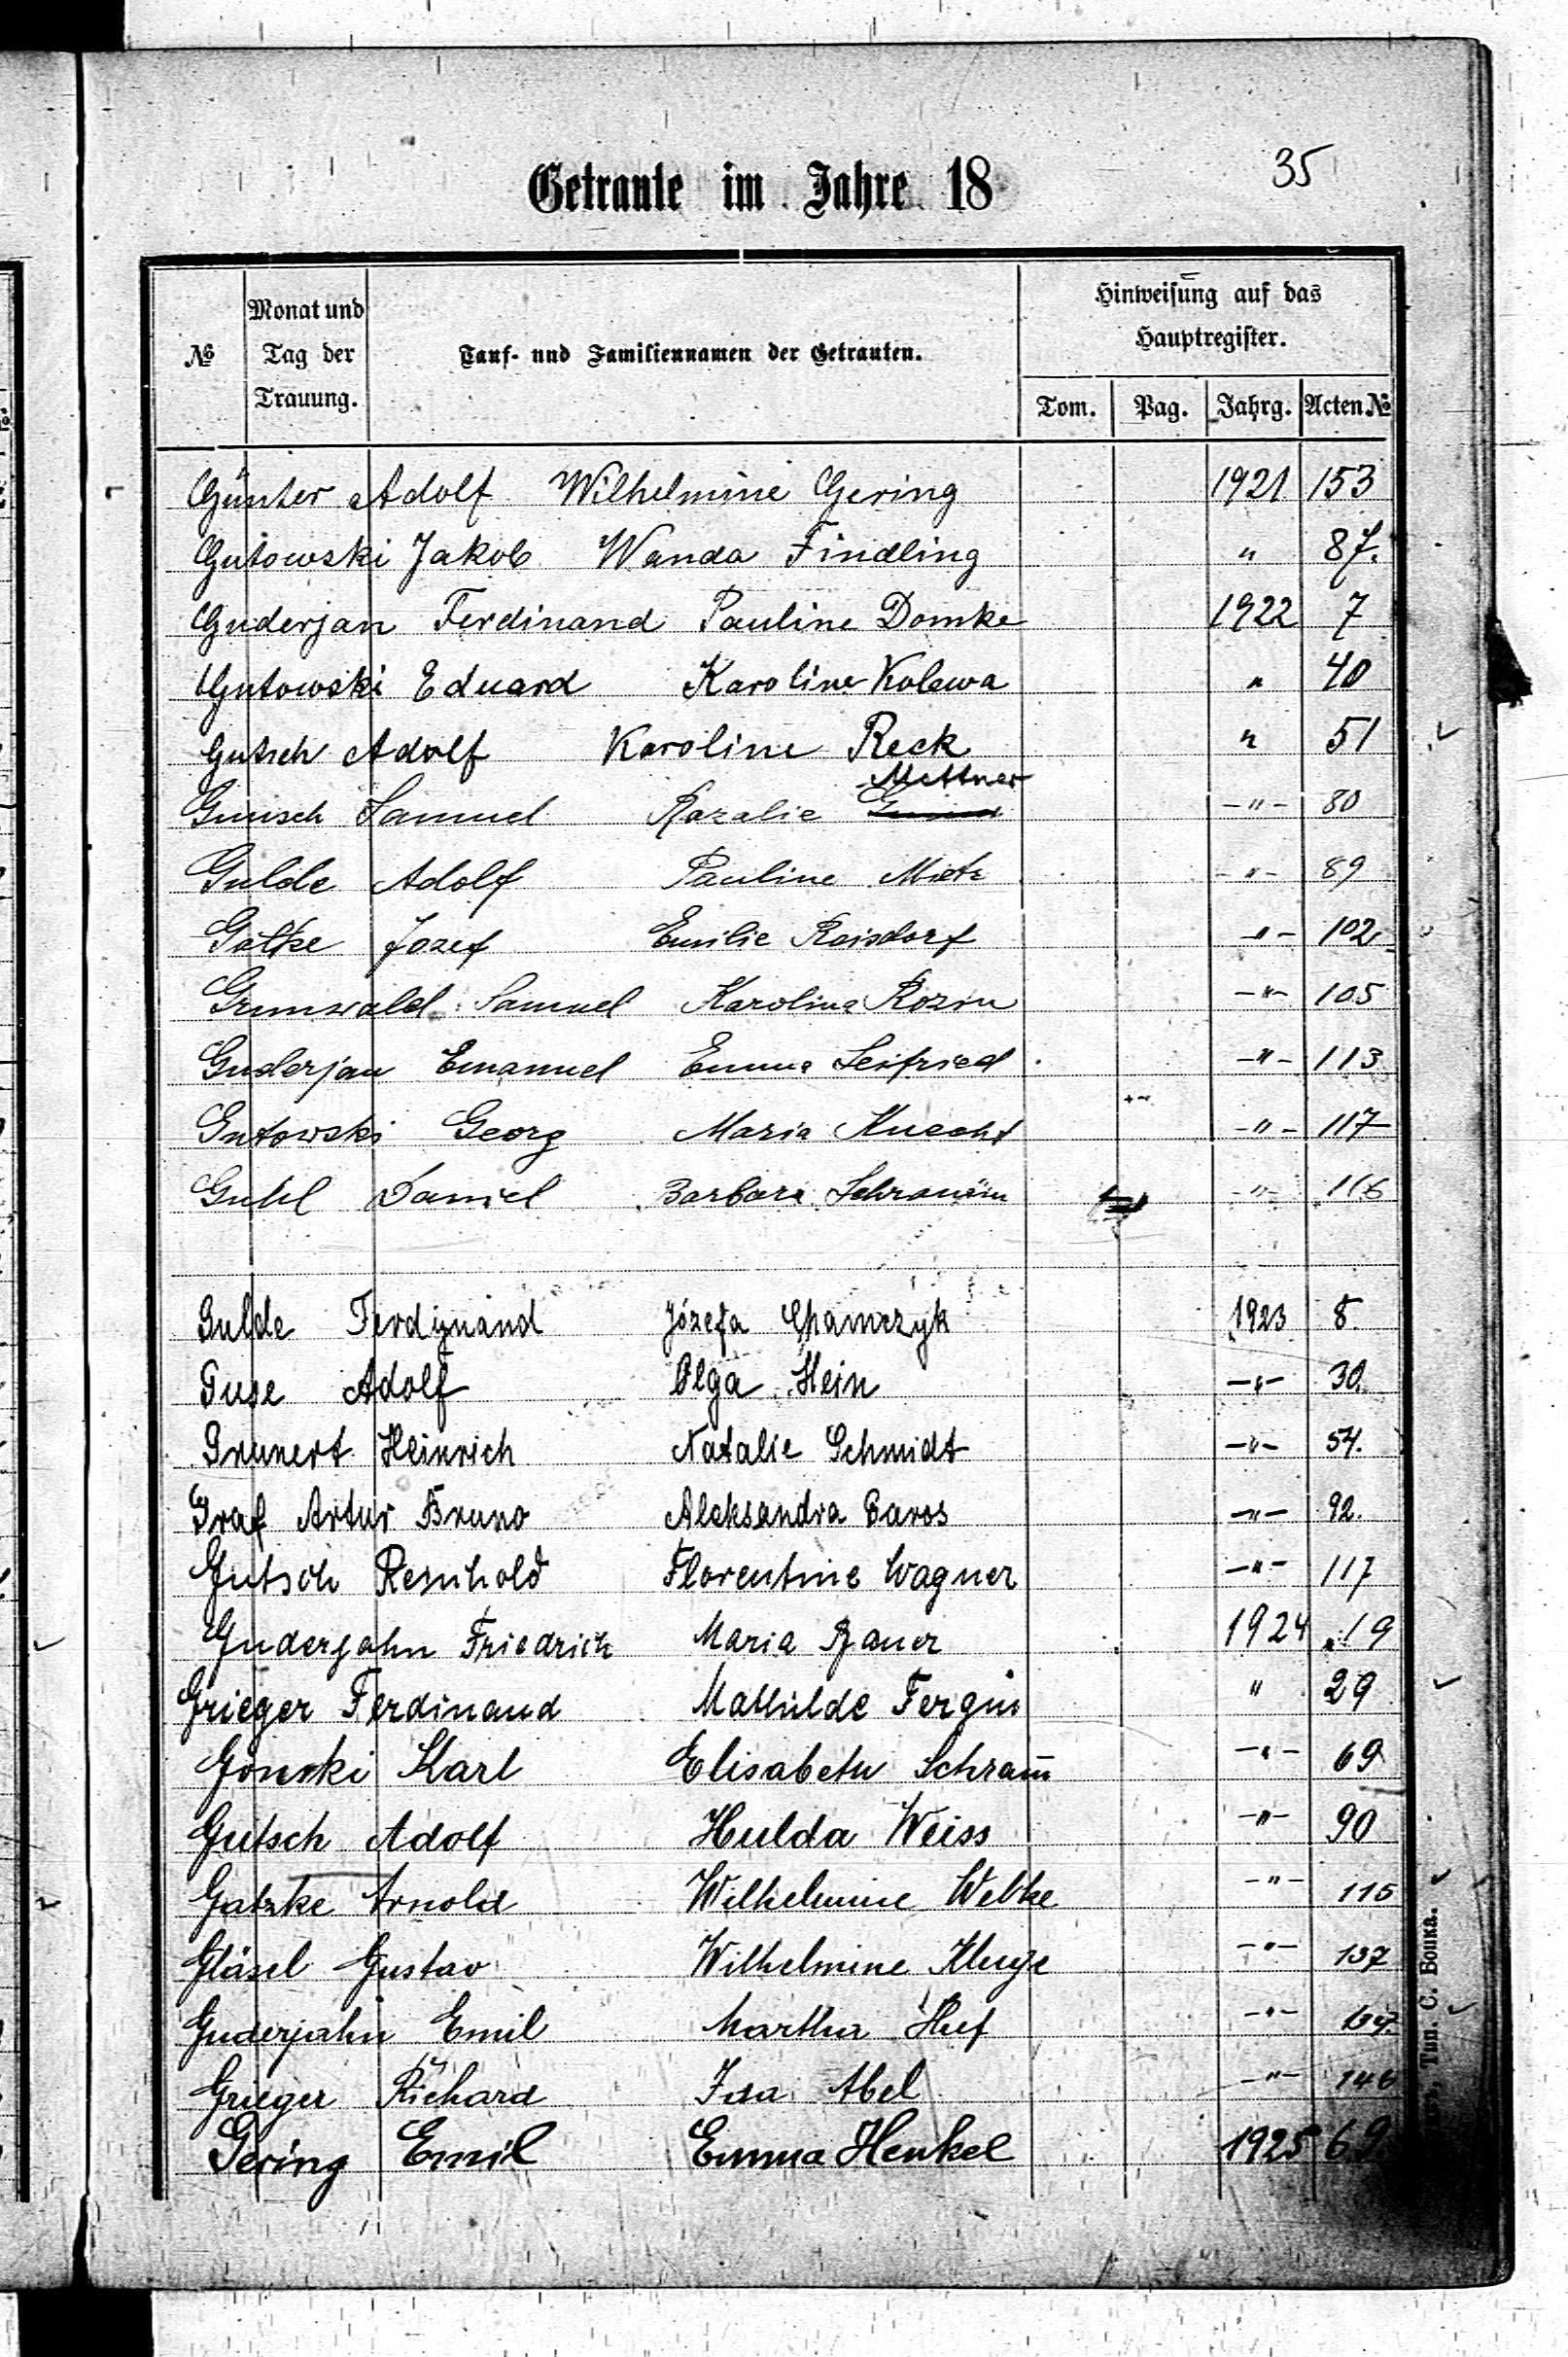 35
Getraute im Jahre 18
№ Monat und Tag der Trauung. Tauf- und Familiennamen der Getrauten. Hinweisung auf das Hauptregister.
Tom. Pag. Jahrg. Acten №
Günter Adolf Wilhelmine Gering 1921 153
Gutowski Jakob Wanda Findling " 87.
Guderjan Ferdinand Pauline Domke 1922 7
Gutowski Eduard Karoline Kolewa " 40
Gutsch Adolf Karoline Reck " 51
Samuel Rozalie Mettner -"- 80
Gulde Adolf Pauline Mietz -"- 89
Józef Emilie Raisdorf -"- 102
Grunwald Samuel Karolina Rozin -"- 105
Guderjan Emanuel Emma Seifried -"- 113
Gutowski Georg Maria Knecht -"- 117
Guhl Daniel Barbara -"- 116
Gulde Ferdynand Józefa 1923 8.
Guse Adolf Olga Hein -"- 30.
Grunert Heinrich Natalie Schmidt -"- 54.
Graf Artur Bruno Aleksandra -"- 92.
Gutsch Reinhold Florentine Wagner -"- 117
Guderjahn Friedrich Maria Bauer 1924 19
Grieger Ferdinand Mathilde Fergin " 29
Karl Elisabeth Schram̄ -"- 69
Gutsch Adolf Hulda Weiss -"- 90
Gatzke Arnold Wilhelmine Weltke -"- 115
Gläsel Gustav Wilhelmine Kluge -"- 137
Guderjahn Emil Martha Huf -"-
Grieger Richard Ida Abel -"- 146
Gering Emil Emma Henkel 1925 69.
Тип. С.